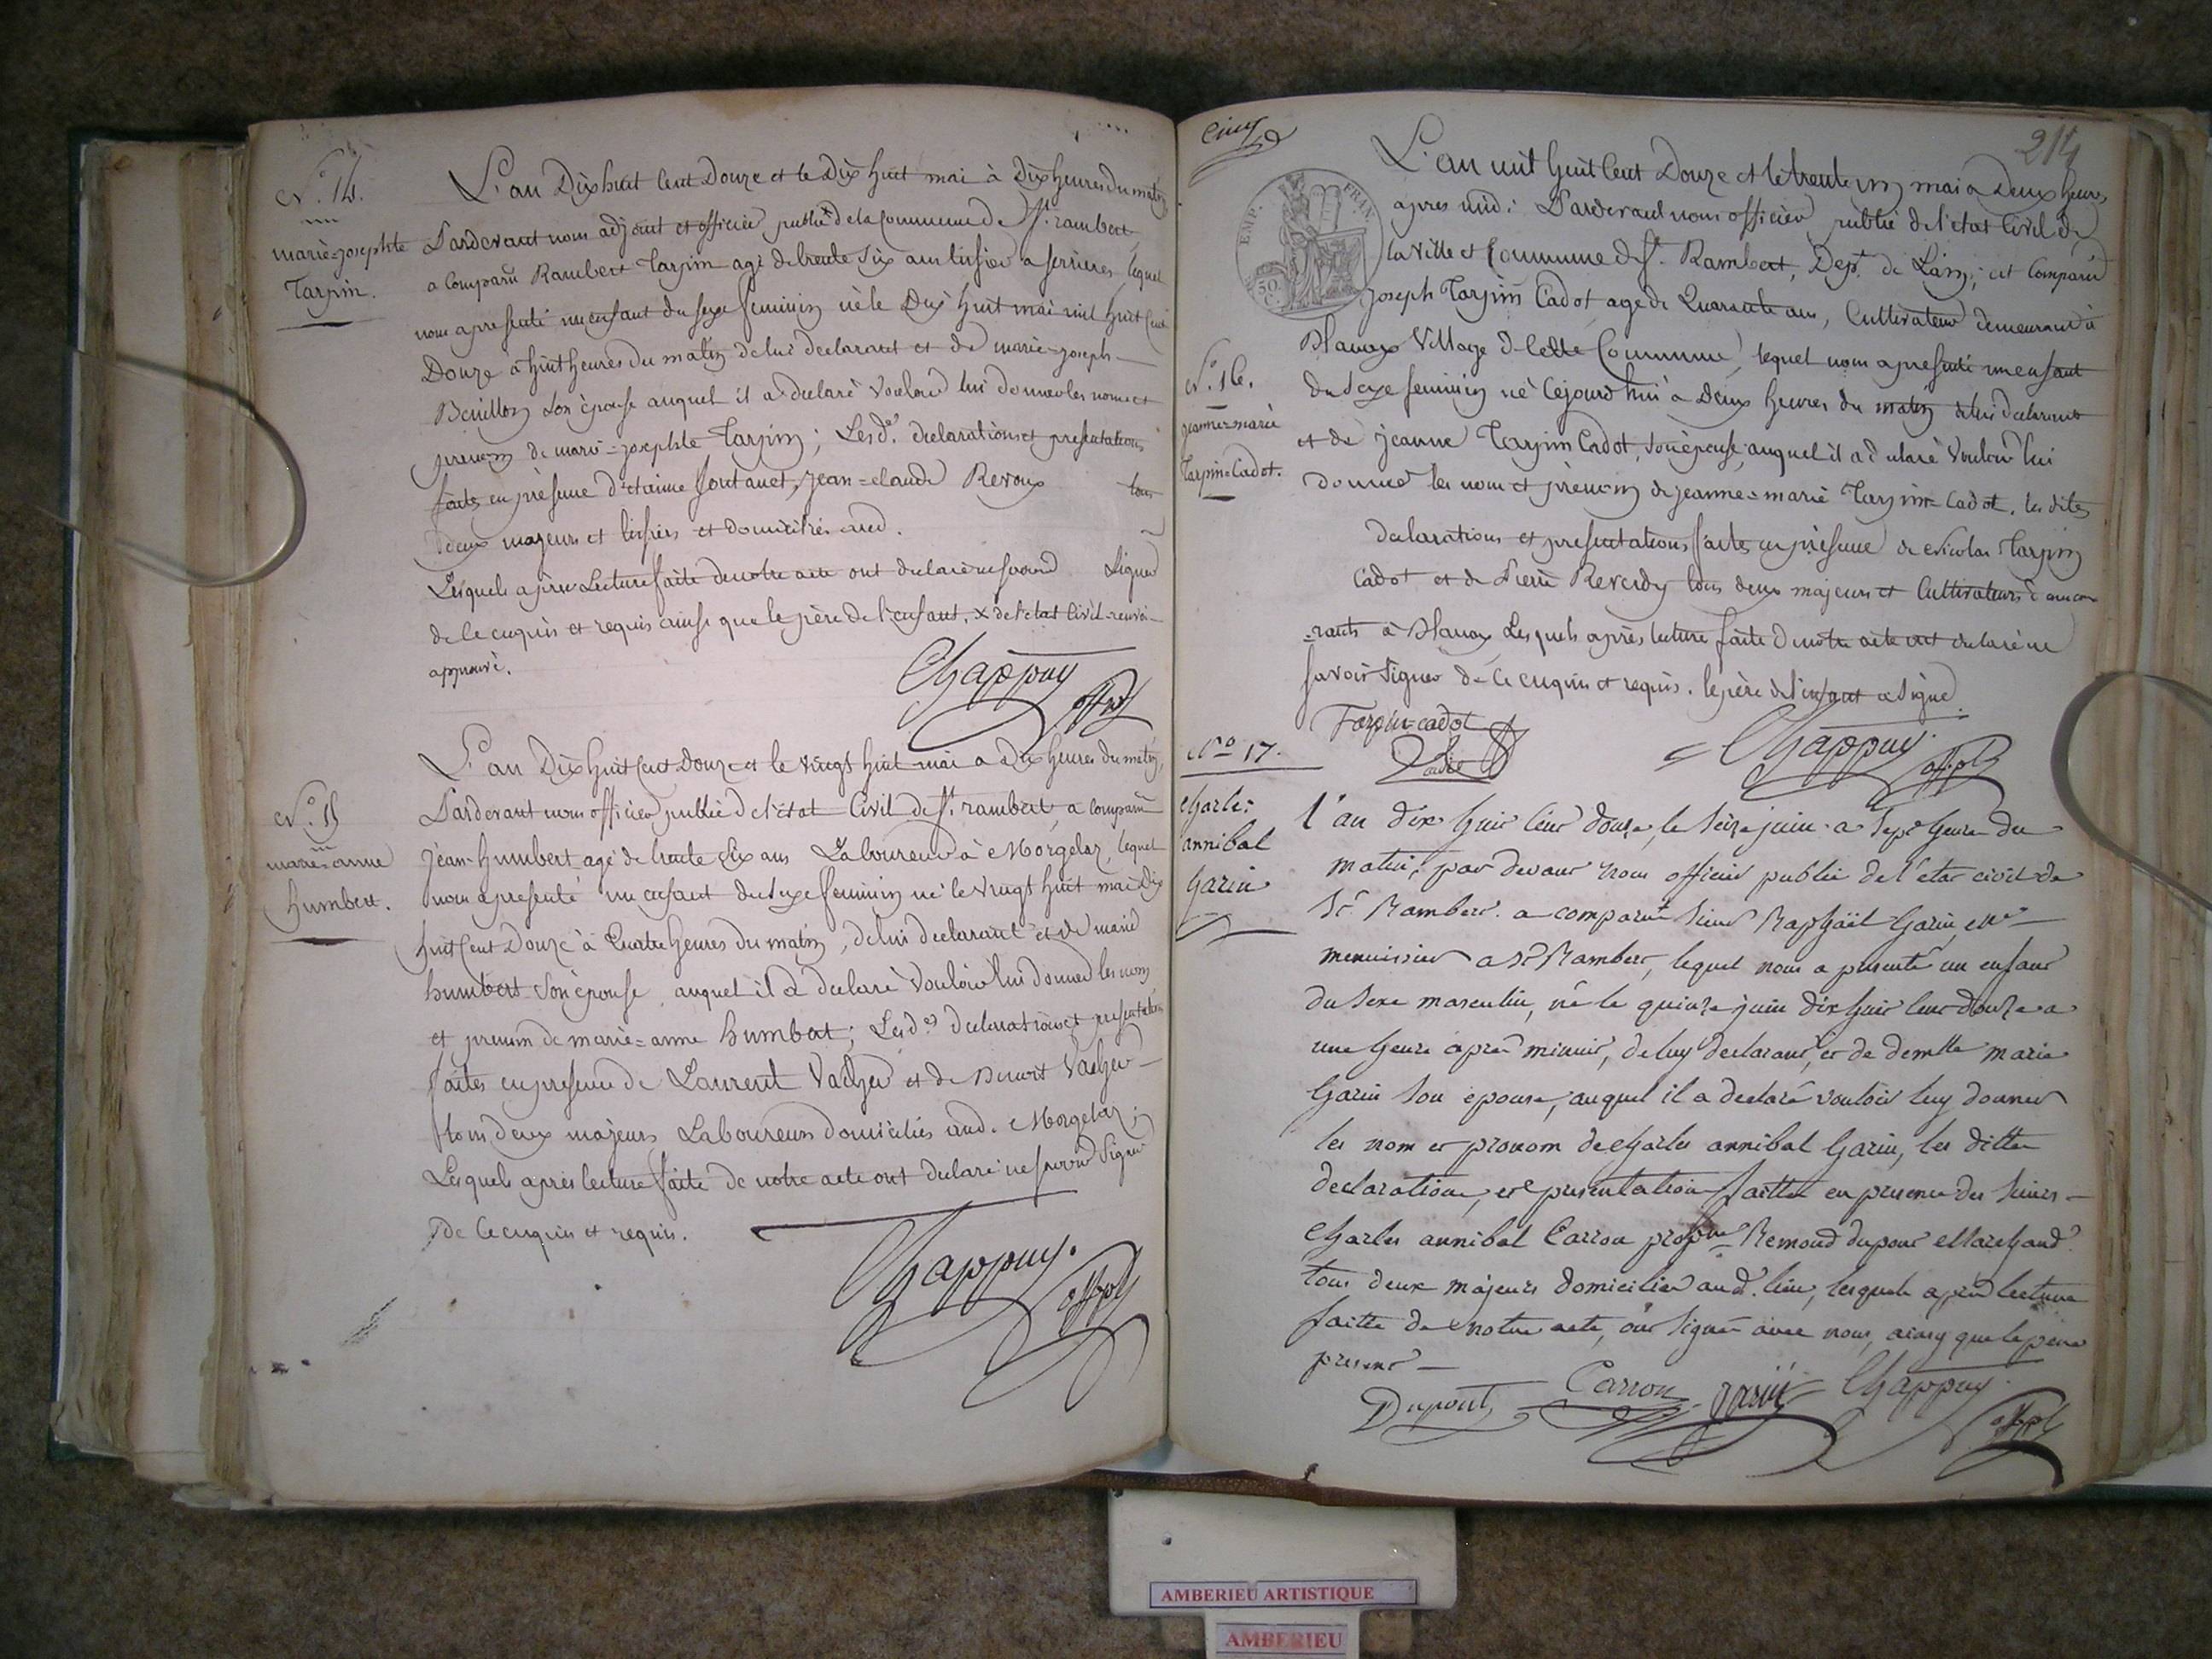 N.º 14.
marie=josephte
Tarpin.
L'an Dix huit Cent Douze et le Dix huit mai à Dix heures du matin
Pardevant nous adjoint et officier public de la Commune de St. rambert
a Comparû Rambert Tarpin agé de trente Six ans tissier a serrieres, lequel
nous a presenté un enfant du sexe feminin né le Dix huit mai mil huit Cent
Douze à huit heures du matin de lui declarant et de marie=joseph
Bouillon Son épouse auquel il a declaré Vouloir lui donner les nom et
prenom de marie=josephte Tarpin; Lesd. declaration et presentation
faits en présence d'etienne fontanet, jean=claude Revoux tous
deux majeurs et tissiers et domiciliés aud.
Lesquels après Lecture faite de notre acte ont declaré ne savoir Signer
de ce enquis et requis ainsi que le père de l'enfant. x de l'etat Civil renvoi
approuvé.
Chappuy
N.º 15
marie=anne
humbert.
L'an Dix huit Cent Douze et le vingt huit mai a Dix heures du matin,
Pardevant nous officier public de l'état Civil de St. rambert, a comparû
jean=humbert agé de trente Six ans Laboureur à Morgelaz, lequel
nous a presenté un enfant du Sexe feminin né le vingt huit mai Dix
huit Cent Douze à Quatre heures du matin, de lui declarant et de marie
humbert Son épouse, auquel il a declaré Vouloir lui donner les nom
et prenom de marie=anne humbert; Lesd.es declaration et presentation
faites en presence de Laurent Vacher et de Benoit Vacher
tous deux majeurs Laboureurs domiciliés aud. Morgelaz;
Lesquels après lecture faite de notre acte ont declaré ne savoir Signer
de ce enquis et requis.
Chappuy.
214
EMP. FRAN.
50 C.
N.º 16.
jeanne=marie
Tarpin=Cadot.
L'an mil huit Cent Douze et le trente un mai a Deux heures
apres midi Pardevant nous officier public de l'etat Civil de
la Ville et Commune de St. Rambert, Dept. de Lain, est Comparu
joseph Tarpin Cadot agé de Quarante ans, Cultivateur demeurant à
Blanaz Village de cette Commune, lequel nous a presenté un enfant
du Sexe feminin né cejourd'hui à Deux heures du matin de lui declarant
et de jeanne Tarpin Cadot, son épouse, auquel il a declaré Vouloir lui
donner les nom et prénom de jeanne=marie Tarpin=Cadot. les dites
declarations et presentations faites en présence de Nicolas Tarpin
Cadot et de Pierre Reverdy tous deux majeurs et Cultivateurs demeu
=rants à Blanaz Lesquels après lecture faite de notre acte ont declaré ne
savoir Signer de ce enquis et requis. le père de l'enfant a Signé
Tarpin=cadot
Chappuy.
N.º 17.
Charles
annibal
Garin
l'an dix huit cent douze, le seize juin a sept heure du
matin, par devant nous officier public de l'état civil de
St. Rambert. a comparut Sieur Raphaël Garin, Me
menuisier a St Rambert, lequel nous a presenté un enfant
du sexe masculin, né le quinze juin dix huit cent douze a
une heure après minuit, de luy declarant, et de demlle marie
Garin son epouse, auquel il a declaré vouloir luy donner
les nom et pronom de Charles annibal Garin, les dittes
declaration, et presentation faittes en presence des sieurs
Charles annibal Carron proprre Remond dupont Marchand
tous deux majeurs domiciliés aud. lieu, lesquels après lecture
faitte de notre acte, ont signé avec nous, ainsy que le père
present
Dupont Carron garin Chappuy.
AMBERIEU ARTISTIQUE
AMBERIEU